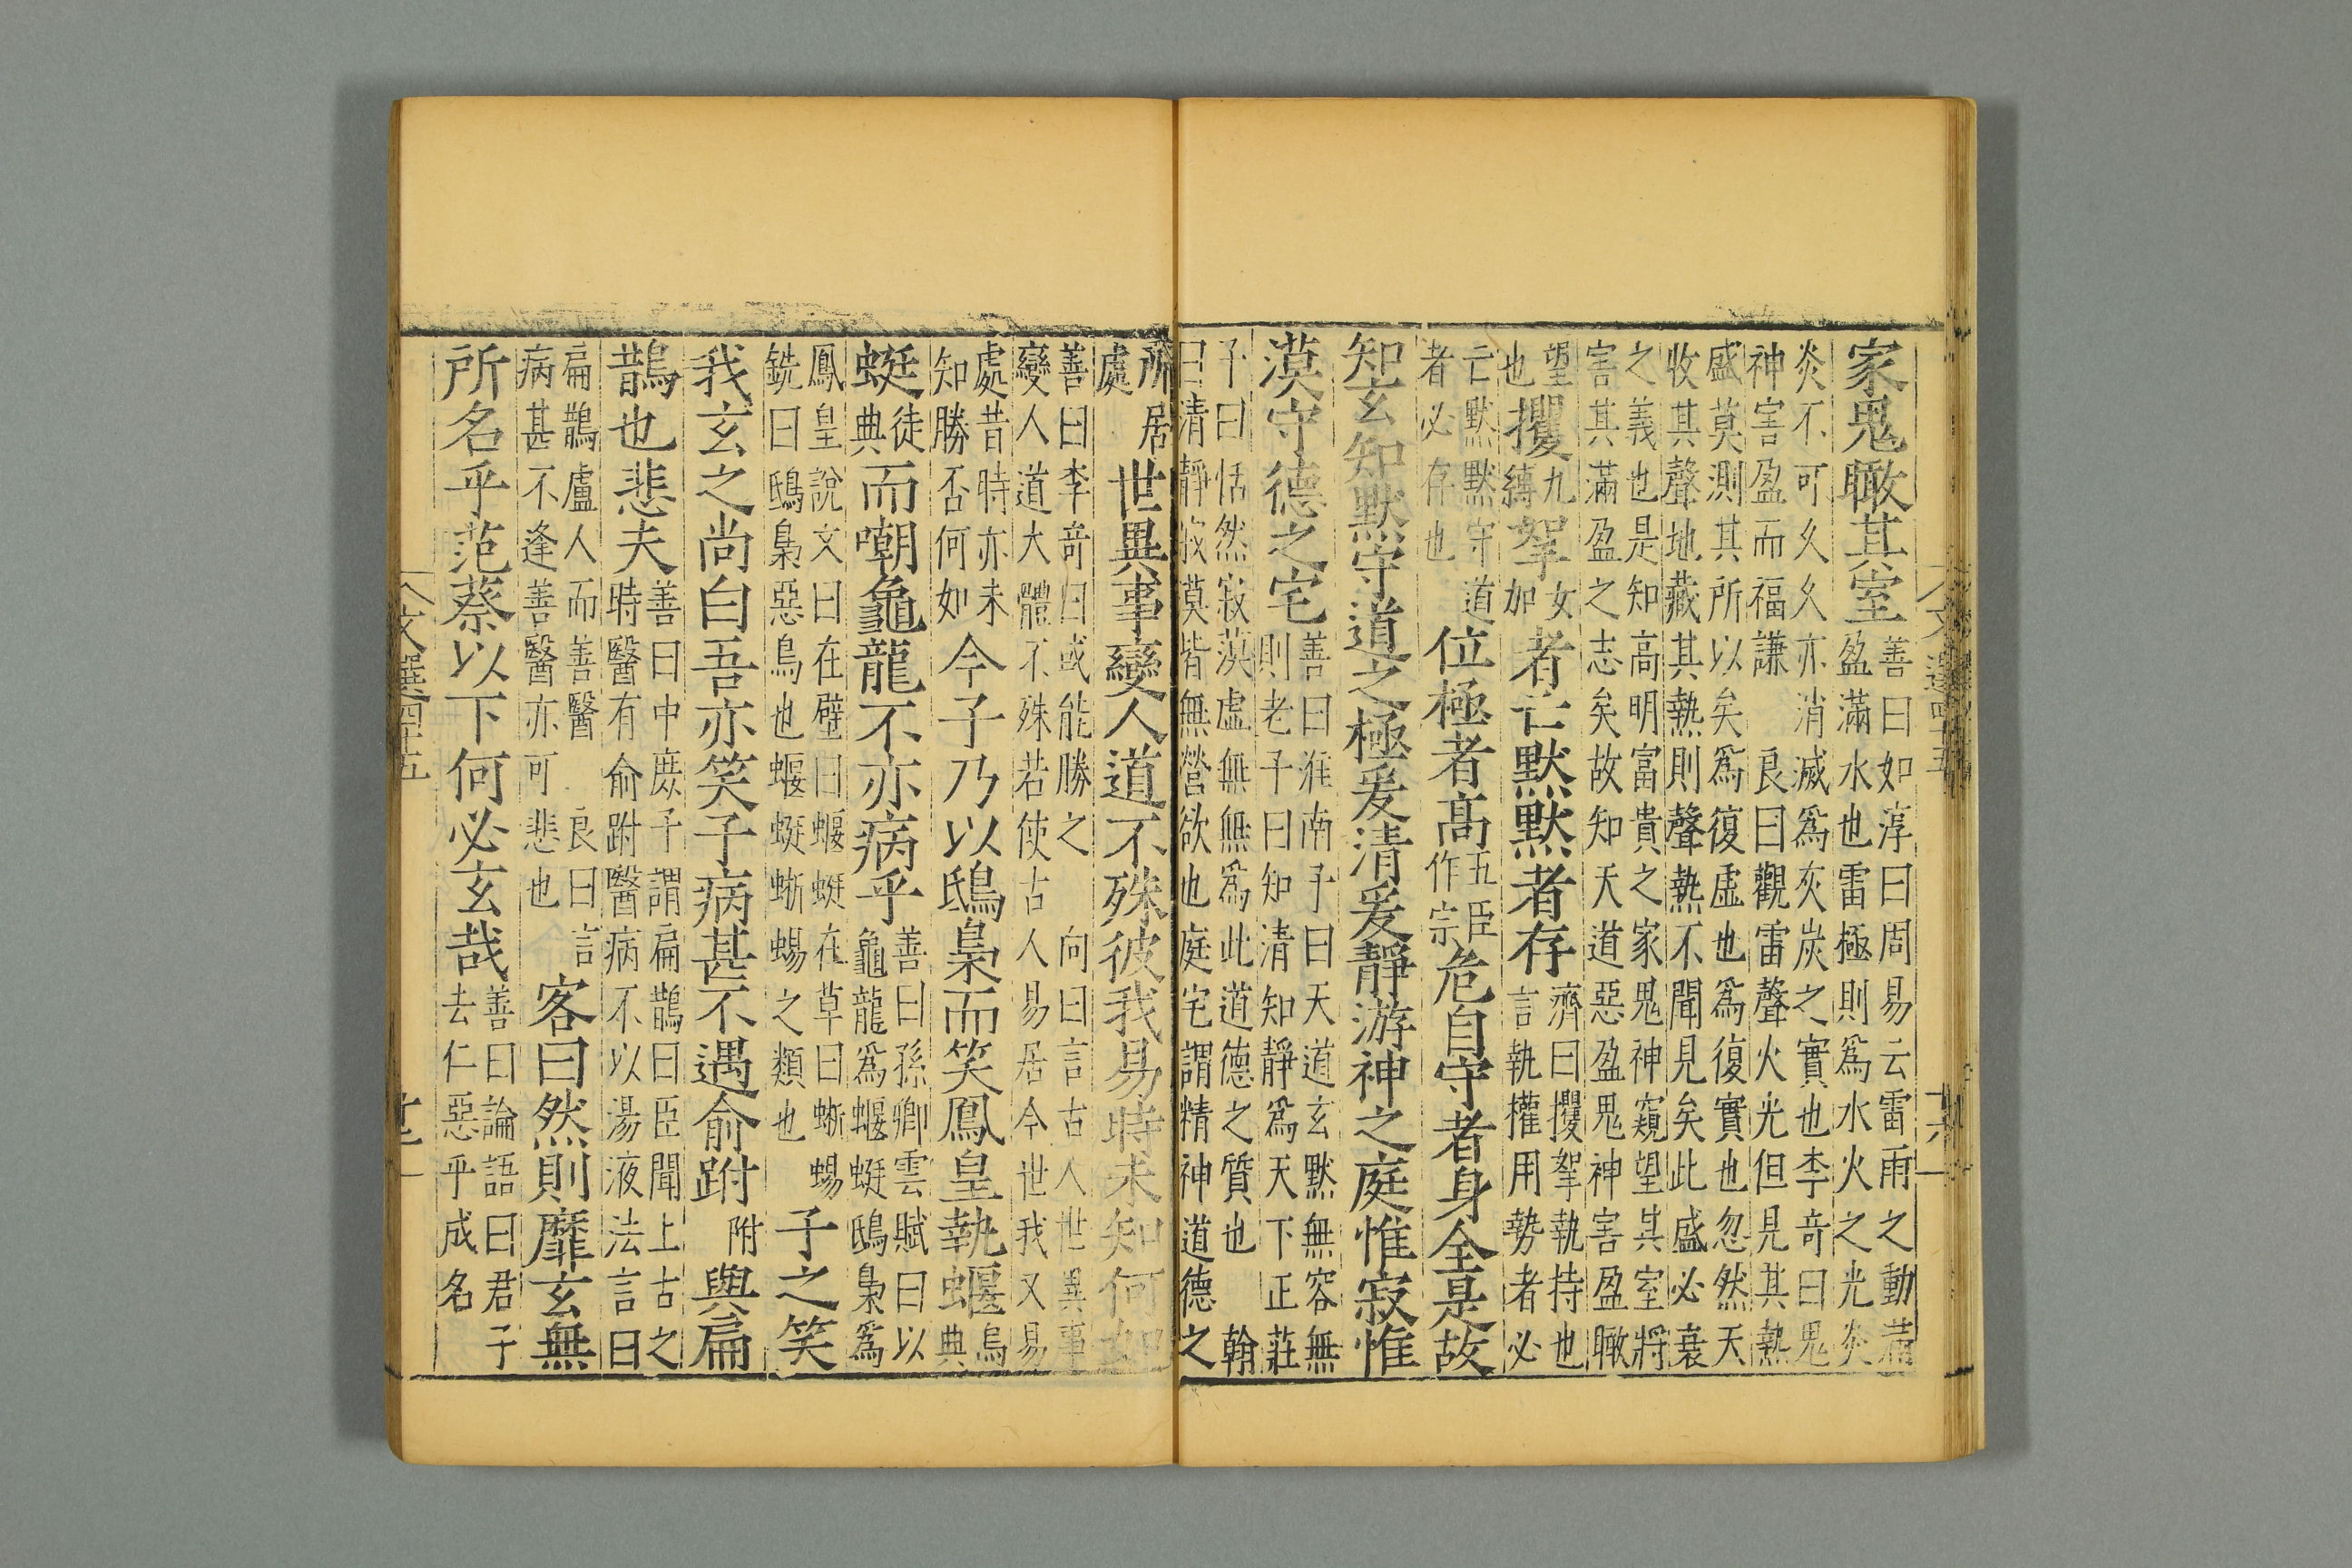 家鬼瞰其室
善曰如淳曰周易云雷雨之動滿
盈滿水也雷極則為水火之光炎
炎不可久久亦消滅為灰炭之實也李奇曰鬼
神害盈而福謙 良曰觀雷聲火光但見其熱
盛莫測其所以矣為復虛也為復實也忽然天
收其聲地藏其熱則聲熱不聞見矣此盛必衰
之義也是知高明富貴之家鬼神窺望其室將
害其滿盈之志矣故知天道惡盈鬼神害盈瞰
望
也
攫
九
縛
挐
女
加
者亡默默者存
濟曰攫挐執持也
言執權用勢者必
亡默默守道
者必存也
位極者高
五臣
作宗
危自守者身全是故
知玄知默守道之極爰清爰靜游神之庭惟寂惟
漠守德之宅
善曰淮南子曰天道玄默無容無
則老子曰知清知靜為天下正莊
子曰恬然寂漠虛無無為此道德之質也 翰
曰清靜寂漠皆無營欲也庭宅謂精神道德之
所居
處
世異事變人道不殊彼我易時未知何如
善曰李奇曰或能勝之 向曰言古人世異事
變人道大體不殊若使古人易居今世我又易
處昔時亦未
知勝否何如
今子乃以鴟梟而笑鳳皇執蝘
鳥
典
蜓
徒
典
而嘲龜龍不亦病乎
善曰孫卿雲賦曰以
龜龍為蝘蜓鴟梟為
鳳皇說文曰在壁曰蝘蜓在草曰蜥蜴
銑曰鴟梟惡鳥也蝘蜓蜥蜴之類也
子之笑
我玄之尚白吾亦笑子病甚不遇俞跗
附
與扁
鵲也悲夫
善曰中庶子謂扁鵲曰臣聞上古之
時醫有俞跗醫病不以湯液法言曰
扁鵲盧人而善醫 良曰言
病甚不逢善醫亦可悲也
客曰然則靡玄無
所名乎范蔡以下何必玄哉
善曰論語曰君子
去仁惡乎成名
文選四十五
十六
文選四十五